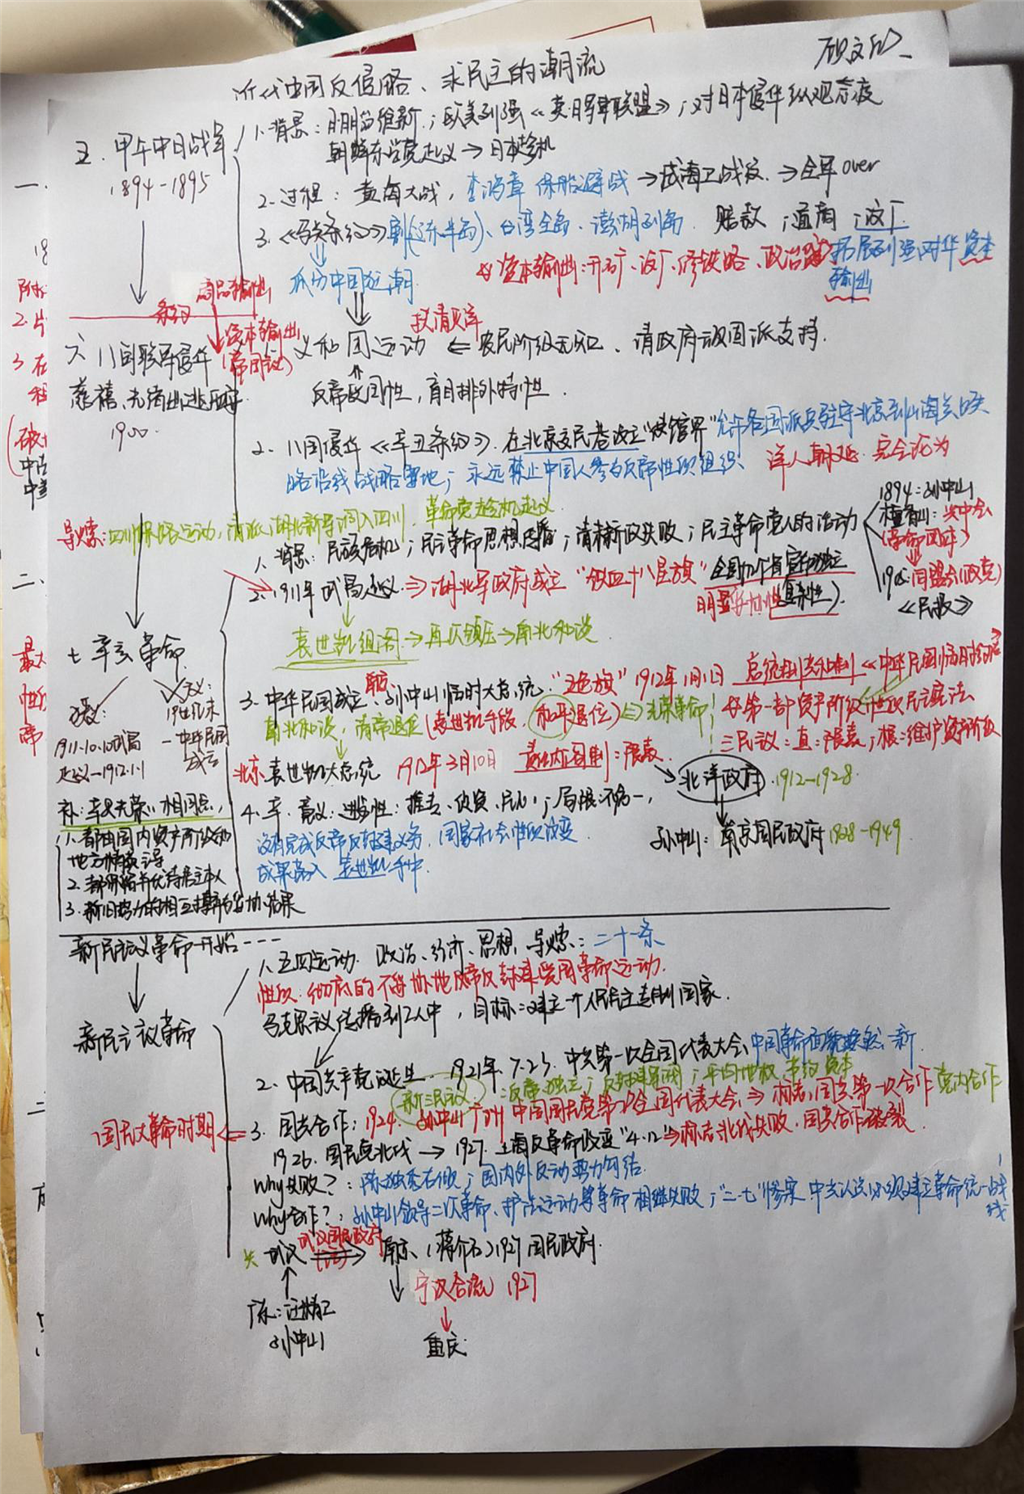 近代中国反侵略、求民主的潮流
五、甲午中日战争
1894-1895
1、背景：明治维新；欧美列强《英日军事联盟》；对日本侵华纵观态度
朝鲜东学党起义→日本趁机
2、过程：黄海大战，李鸿章 保船避战→威海卫战役→全军over
3、《马关条约》割(辽东半岛)、台湾全岛、澎湖列岛 赔款；通商；设厂
资本输出：开矿、设厂、修铁路、政治贷款
拓展列强对华资本输出
瓜分中国狂潮
商品输出
条约
资本输出
(帝国主义)
扶清灭洋
六、八国联军侵华
慈禧、光绪出逃西安
1900
义和团运动 ← 农民阶级无知、清政府顽固派支持
反帝爱国性，盲目排外特性
2、八国侵华《辛丑条约》、在北京东民巷设立"使馆界"允许各国派兵驻守北京到山海关铁
路沿线战略要地；永远禁止中国人参与反帝性质组织、
洋人朝廷 完全沦为
导火索：四川保路运动，清派湖北新军调入四川，革命党趁机起义
1、背景：民族危机；民主革命思想传播；清末新政失败；民主革命党人的活动
1894：孙中山
檀香山：兴中会
(革命团体)
同盟会(政党)
《民报》
2、1911年武昌起义⇒湖北军政府成立"铁血十八星旗"
全国十几个省宣布独立
(复杂性)
袁世凯组阁→再次镇压→南北和谈
七、辛亥革命
狭义：
1911.10.10武昌
起义—1912.1.1
广义：
19世纪末
—中华民国
成立
3、中华民国成立、孙中山临时大总统"五色旗"1912年1月1日
南北和谈，清帝退位(袁世凯手段，和平退位)
总统制共和制《中华民国临时约法》
第一部资产阶级性质民主宪法
三民主义
北京：袁世凯大总统
1912年3月10日 责任内阁制：限袁
北洋政府 1912-1928
孙中山：南京国民政府 1928-1949
4、辛、意义：进步性：推、民心；局限不统一，
没有完成反帝反封建义务，国家社会性质没变
成果落入袁世凯手中
1、都由国内资产阶级和
地方
3、新旧势力的相互妥协结果
新民主主义革命开始---
新民主主义革命
1、五四运动：政治、经济、思想、导火索：二十一条
性质：彻底的不妥协地反帝反封建爱国革命运动
马克思主义传播到工人中，目标：建立一个人民民主专制国家
2、中国共产党诞生 1921年.7.23.中共第一次全国代表大会、中国革命面貌焕然一新
新三民主义
平均地权 节约资本
国民大革命时期
3、国共合作；1924、孙中山广州 中国国民党第一次全国代表大会⇒标志：国共第一次合作 党内合作
1926、国民党北伐→1927.上海反革命政变"4.12"⇒标志北伐失败、国共合作破裂
Why失败？：陈独秀右倾；国内外反动势力勾结
Why合作？：孙中山领导二次革命、护法运动等革命相继失败；"二·七"惨案 中共认识必须建立革命统一战线
武汉
武汉国民政府
南京、(蒋介石)1927国民政府
宁汉合流 1927
广东：汪精卫
孙中山
重庆